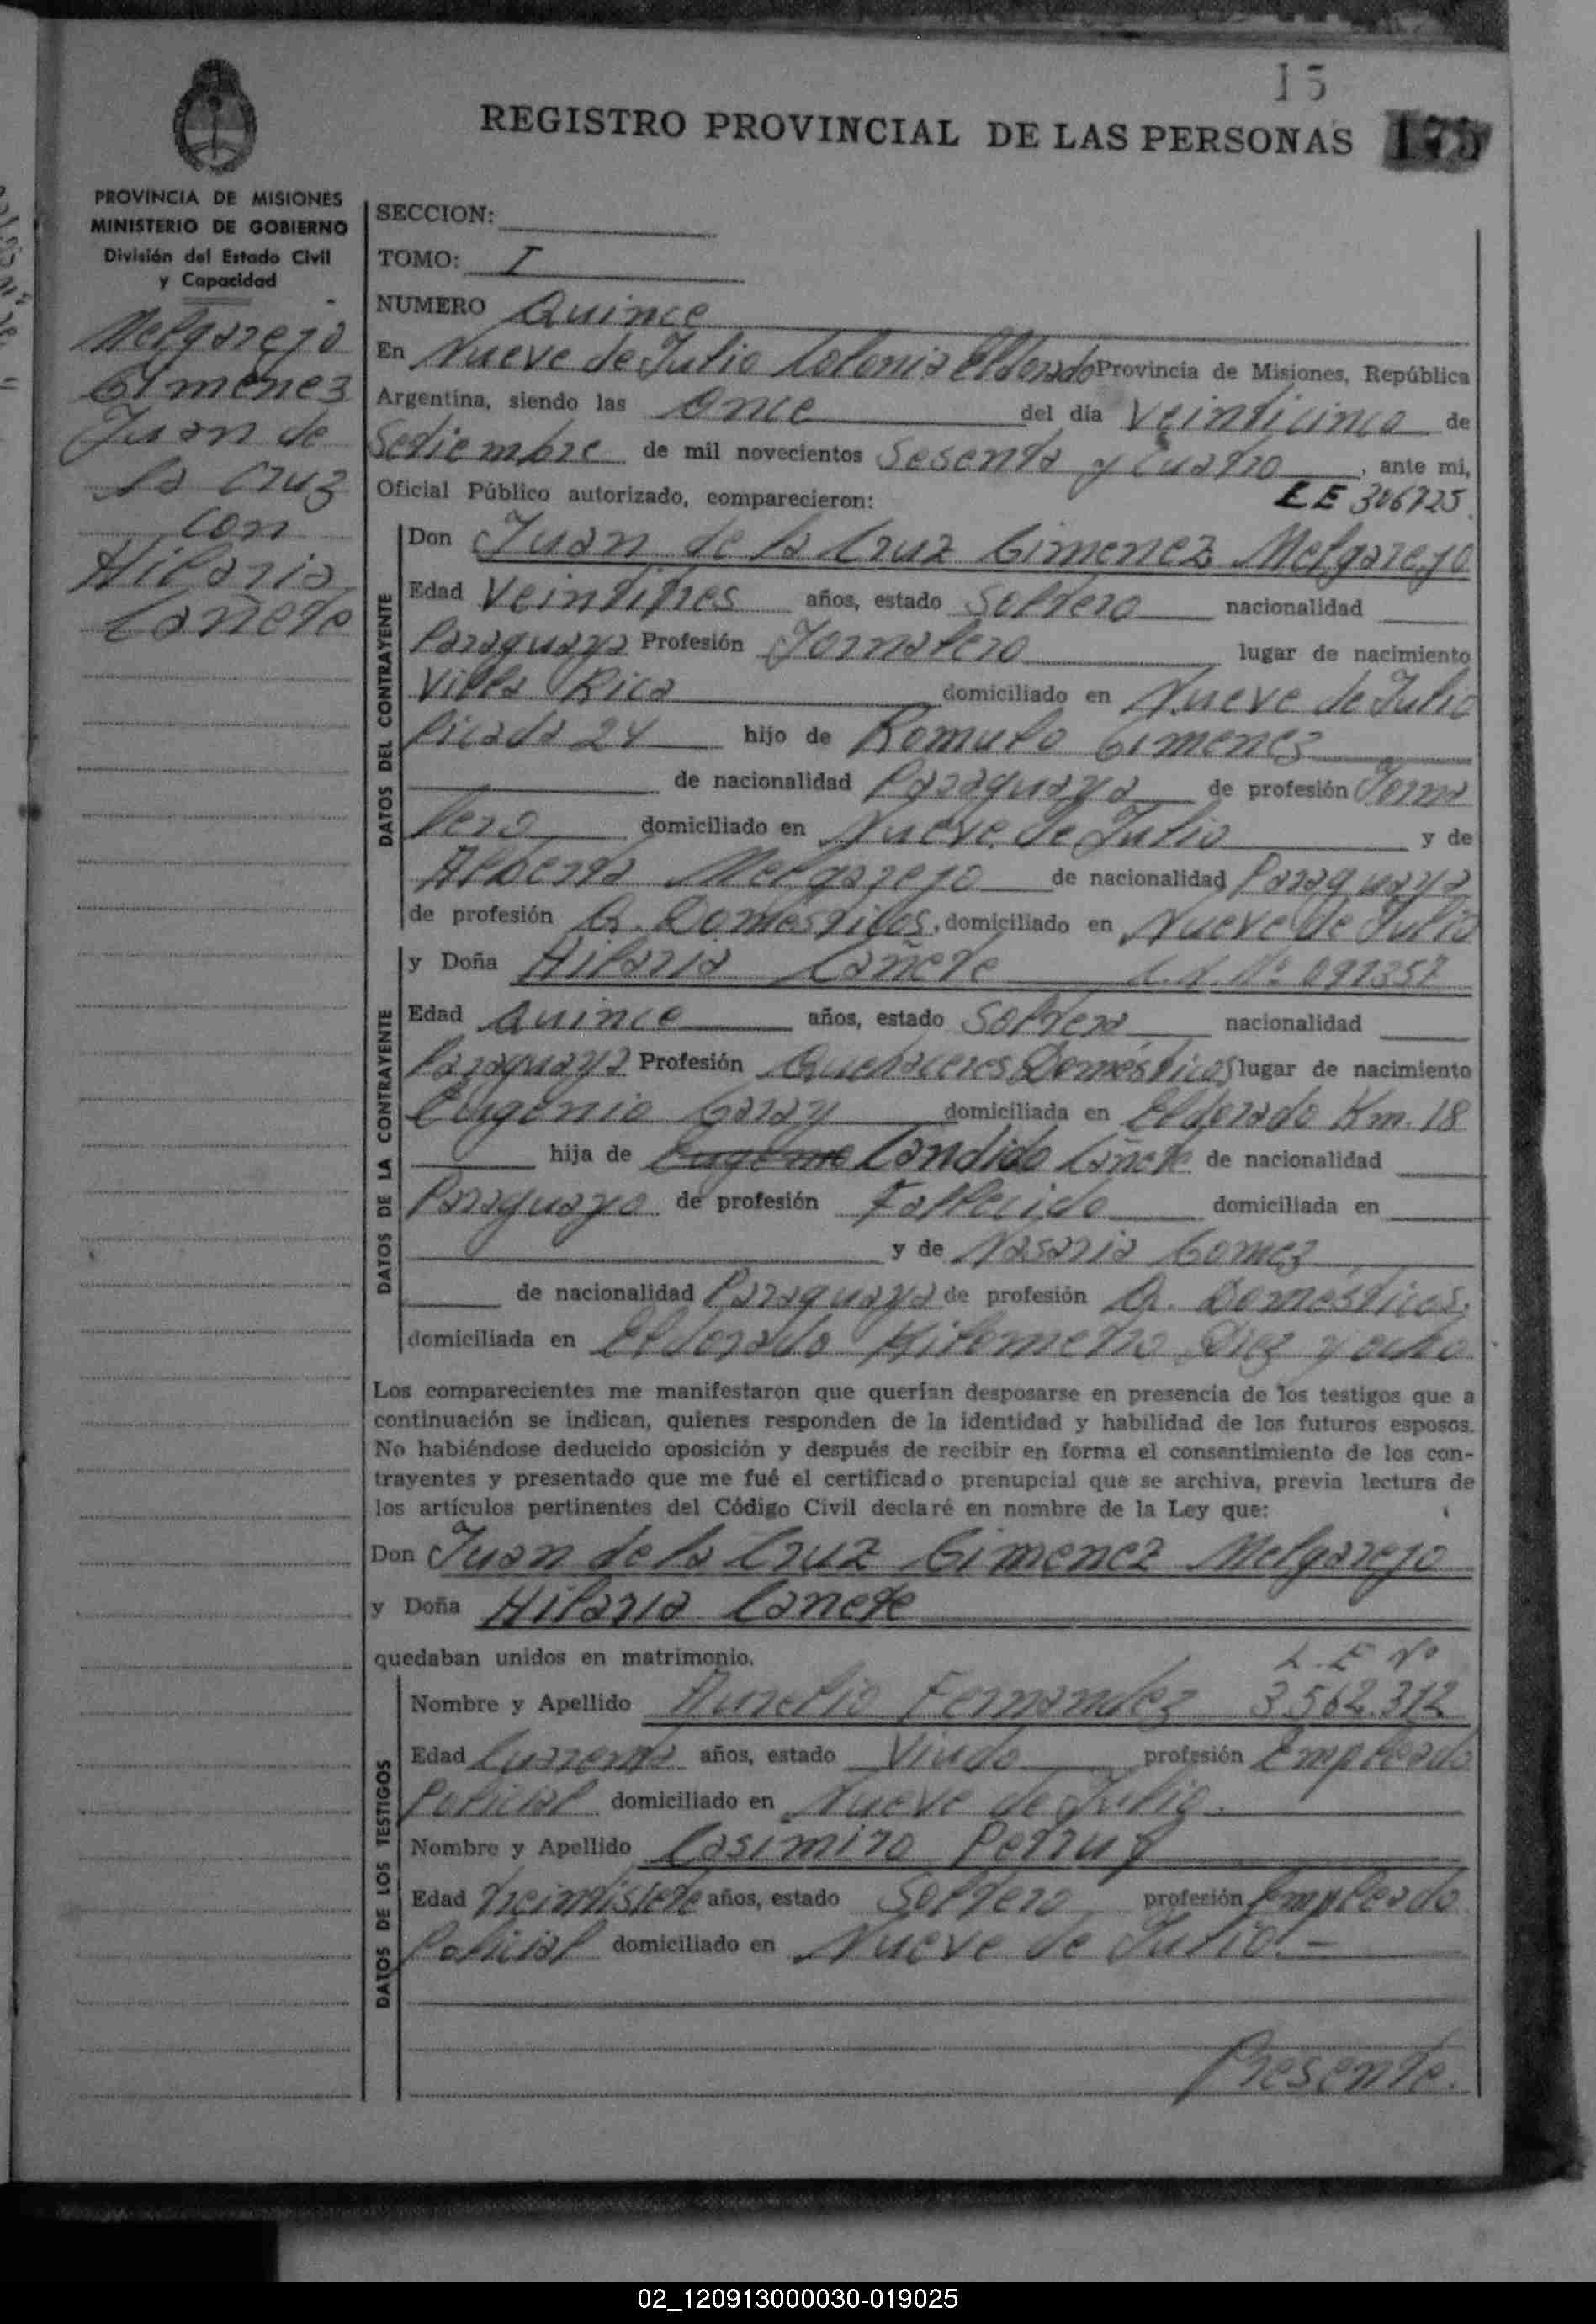 15
REGISTRO PROVINCIAL DE LAS PERSONAS 175
PROVINCIA DE MISIONES
MINISTERIO DE GOBIERNO
División del Estado Civil
y Capacidad
Melgarejo
Gimenez
Juan de
la Cruz
con
Hilaria
Cañete
SECCION:
TOMO: I
NUMERO Quince
En Nueve de Julio Colonia Eldorado Provincia de Misiones, República
Argentina, siendo las Once del día Veinticinco de
Setiembre de mil novecientos Sesenta y Cuatro, ante mi,
Oficial Público autorizado, comparecieron: LE 306725.
DATOS DEL CONTRAYENTE
Don Juan de la Cruz Gimenez Melgarejo
Edad Veintitres años, estado Soltero nacionalidad
Paraguaya Profesión Jornalero lugar de nacimiento
Villa Rica domiciliado en Nueve de Julio
Picada 24 hijo de Romulo Gimenez
de nacionalidad Paraguaya de profesión Jorna
lero domiciliado en Nueve de Julio y de
Alberta Melgarejo de nacionalidad Paraguaya
de profesión Q. Domesticos, domiciliado en Nueve de Julio
DATOS DE LA CONTRAYENTE
y Doña Hilaria Cañete Nº 091357
Edad Quince años, estado Soltera nacionalidad
Paraguaya Profesión Quehaceres Domésticos lugar de nacimiento
Eugenio Garay domiciliada en Eldorado Km. 18
hija de Eugenio Candido Cañete de nacionalidad
Paraguayo de profesión Fallecido domiciliada en
y de Nasaria Gomez
de nacionalidad Paraguaya de profesión Q. Domésticos.
domiciliada en Eldorado Kilometro Diez y ocho.
Los comparecientes me manifestaron que querían desposarse en presencia de los testigos que a
continuación se indican, quienes responden de la identidad y habilidad de los futuros esposos.
No habiéndose deducido oposición y después de recibir en forma el consentimiento de los con-
trayentes y presentado que me fué el certificado prenupcial que se archiva, previa lectura de
los artículos pertinentes del Código Civil declaré en nombre de la Ley que:
Don Juan de la Cruz Gimenez Melgarejo
y Doña Hilaria Canete
quedaban unidos en matrimonio. L. E Nº
DATOS DE LOS TESTIGOS
Nombre y Apellido Aurelio Fernandez 3.562.312
Edad Cuarenta años, estado Viudo profesión Empleado
Policial domiciliado en Nueve de Julio.
Nombre y Apellido Casimiro Petruy
Edad Veintisiete años, estado Soltero profesión Empleado
Policial domiciliado en Nueve de Julio.-
Presente.
02_120913000030-019025